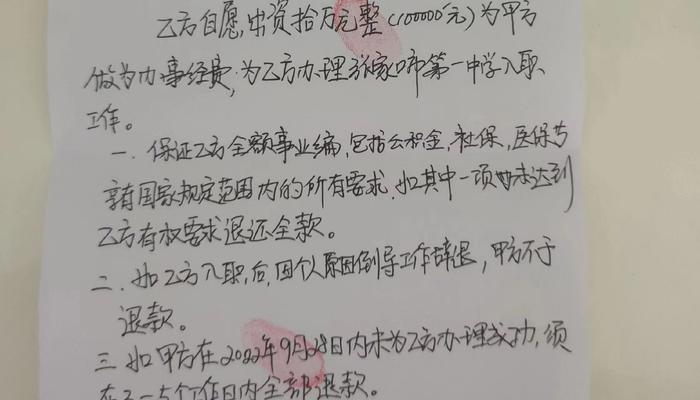 乙方自愿出资拾万元整(100000元)为甲方
做为办事经费,为乙方办理张家口市第一中学入职
工作。
一、保证乙方全额事业编,包括公积金,社保,医保等
享有国家规定范围内的所有要求,如其中一项未达到
乙方有权要求退还全款。
二、如乙方入职后,因个人原因倒导工作辞退,甲方不于
退款。
三、如甲方在2022年9月28日内未为乙方办理成功,须
在3-5个工作日内全部退款。